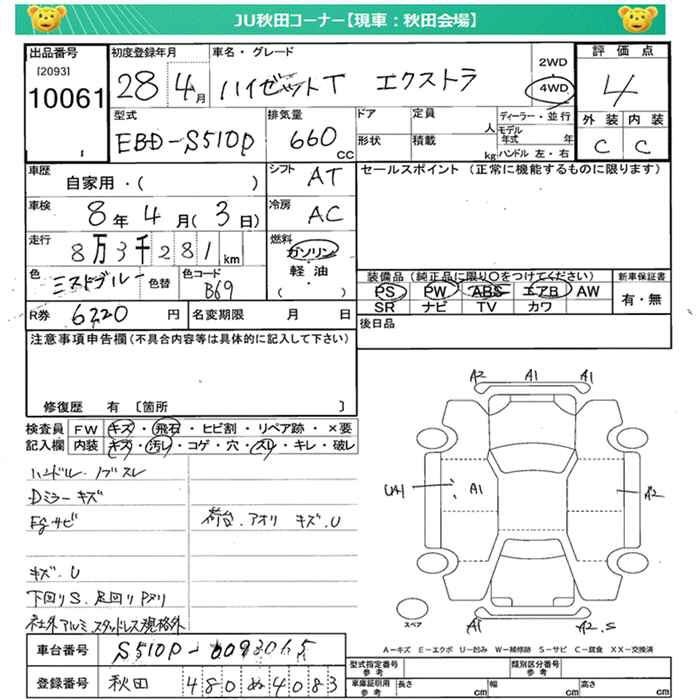 JU秋田コーナー【現車:秋田会場】
出品番号 初度登録年月 車名・グレード 評価点
[2093] 2WD
10061 28 4月 ハイゼットT エクストラ 4WD 4
型式 排気量 ドア 定員 人 ディーラー・並行 外装 内装
EBD-S510P 660 CC 形状 積載 kg モデル年式 年 ハンドル 左・右 C C
車歴 シフト セールスポイント (正常に機能するものに限ります)
自家用・( ) AT
車検 冷房
8年 4月( 3日) AC
走行 燃料
8万3千281km ガソリン
軽油
・
( )
色 色替 色コード 装備品(純正品に限り〇をつけてください) 新車保証書
ミストブルー B69 PS PW ABS エアB AW 有・無
SR ナビ TV カワ
R券 6220円 名変期限 月 日 後日品
注意事項申告欄(不具合内容等は具体的に記入して下さい)
修復歴 有 〔箇所 〕
検査員 FW キズ・飛石・ヒビ割・リペア跡・×要
記入欄 内装 キズ・汚レ・コゲ・穴・スレ・キレ・破レ
ハンドル.ノブスレ
Dミラーキズ
Egサビ 荷台.アオリ キズ.U
キズ.U
下回りS.足回りPヌリ
社外アルミ スタッドレス規格外
A2 A1 A1
UA1 A1 A2
A1 A2.S
スペア
A-キズ E-エクボ U-凹み W-補修跡 S-サビ C-腐食 XX-交換済
車台番号 S510P-0093065
登録番号 秋田 480 ぬ 4083
型式指定番号 参考 類別区分番号 参考
車庫証明用 参考 長さ cm 幅 cm 高さ cm